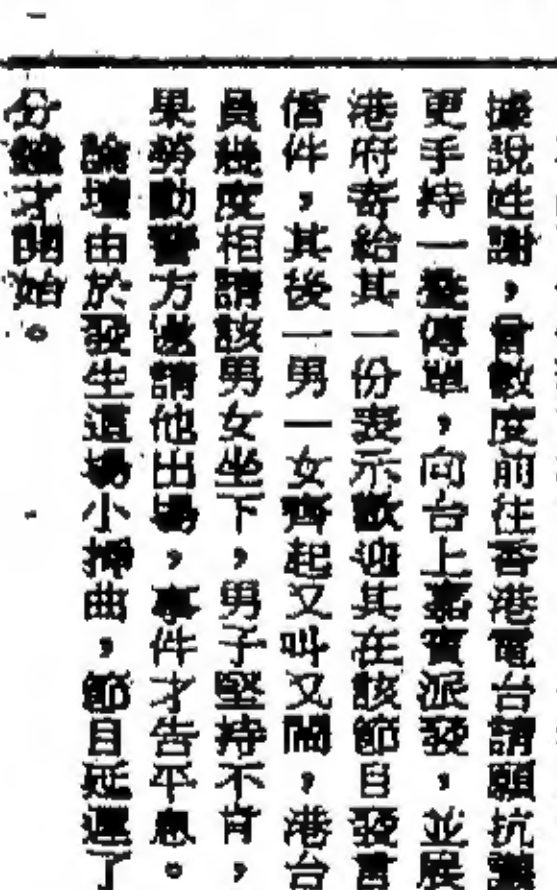 據說姓謝，曾數度前往香港電台請願抗議
更手持一疊傳單，向台上嘉賓派發，並展
港府寄給其一份表示歡迎其在該節目發言
信件，其後一男一女齊起又叫又鬧，港台
員幾度相請該男女坐下，男子堅持不肯，
果勞動警方邀請他出場，事件才告平息。
論壇由於發生這場小插曲，節目延遲了
分鐘才開始。